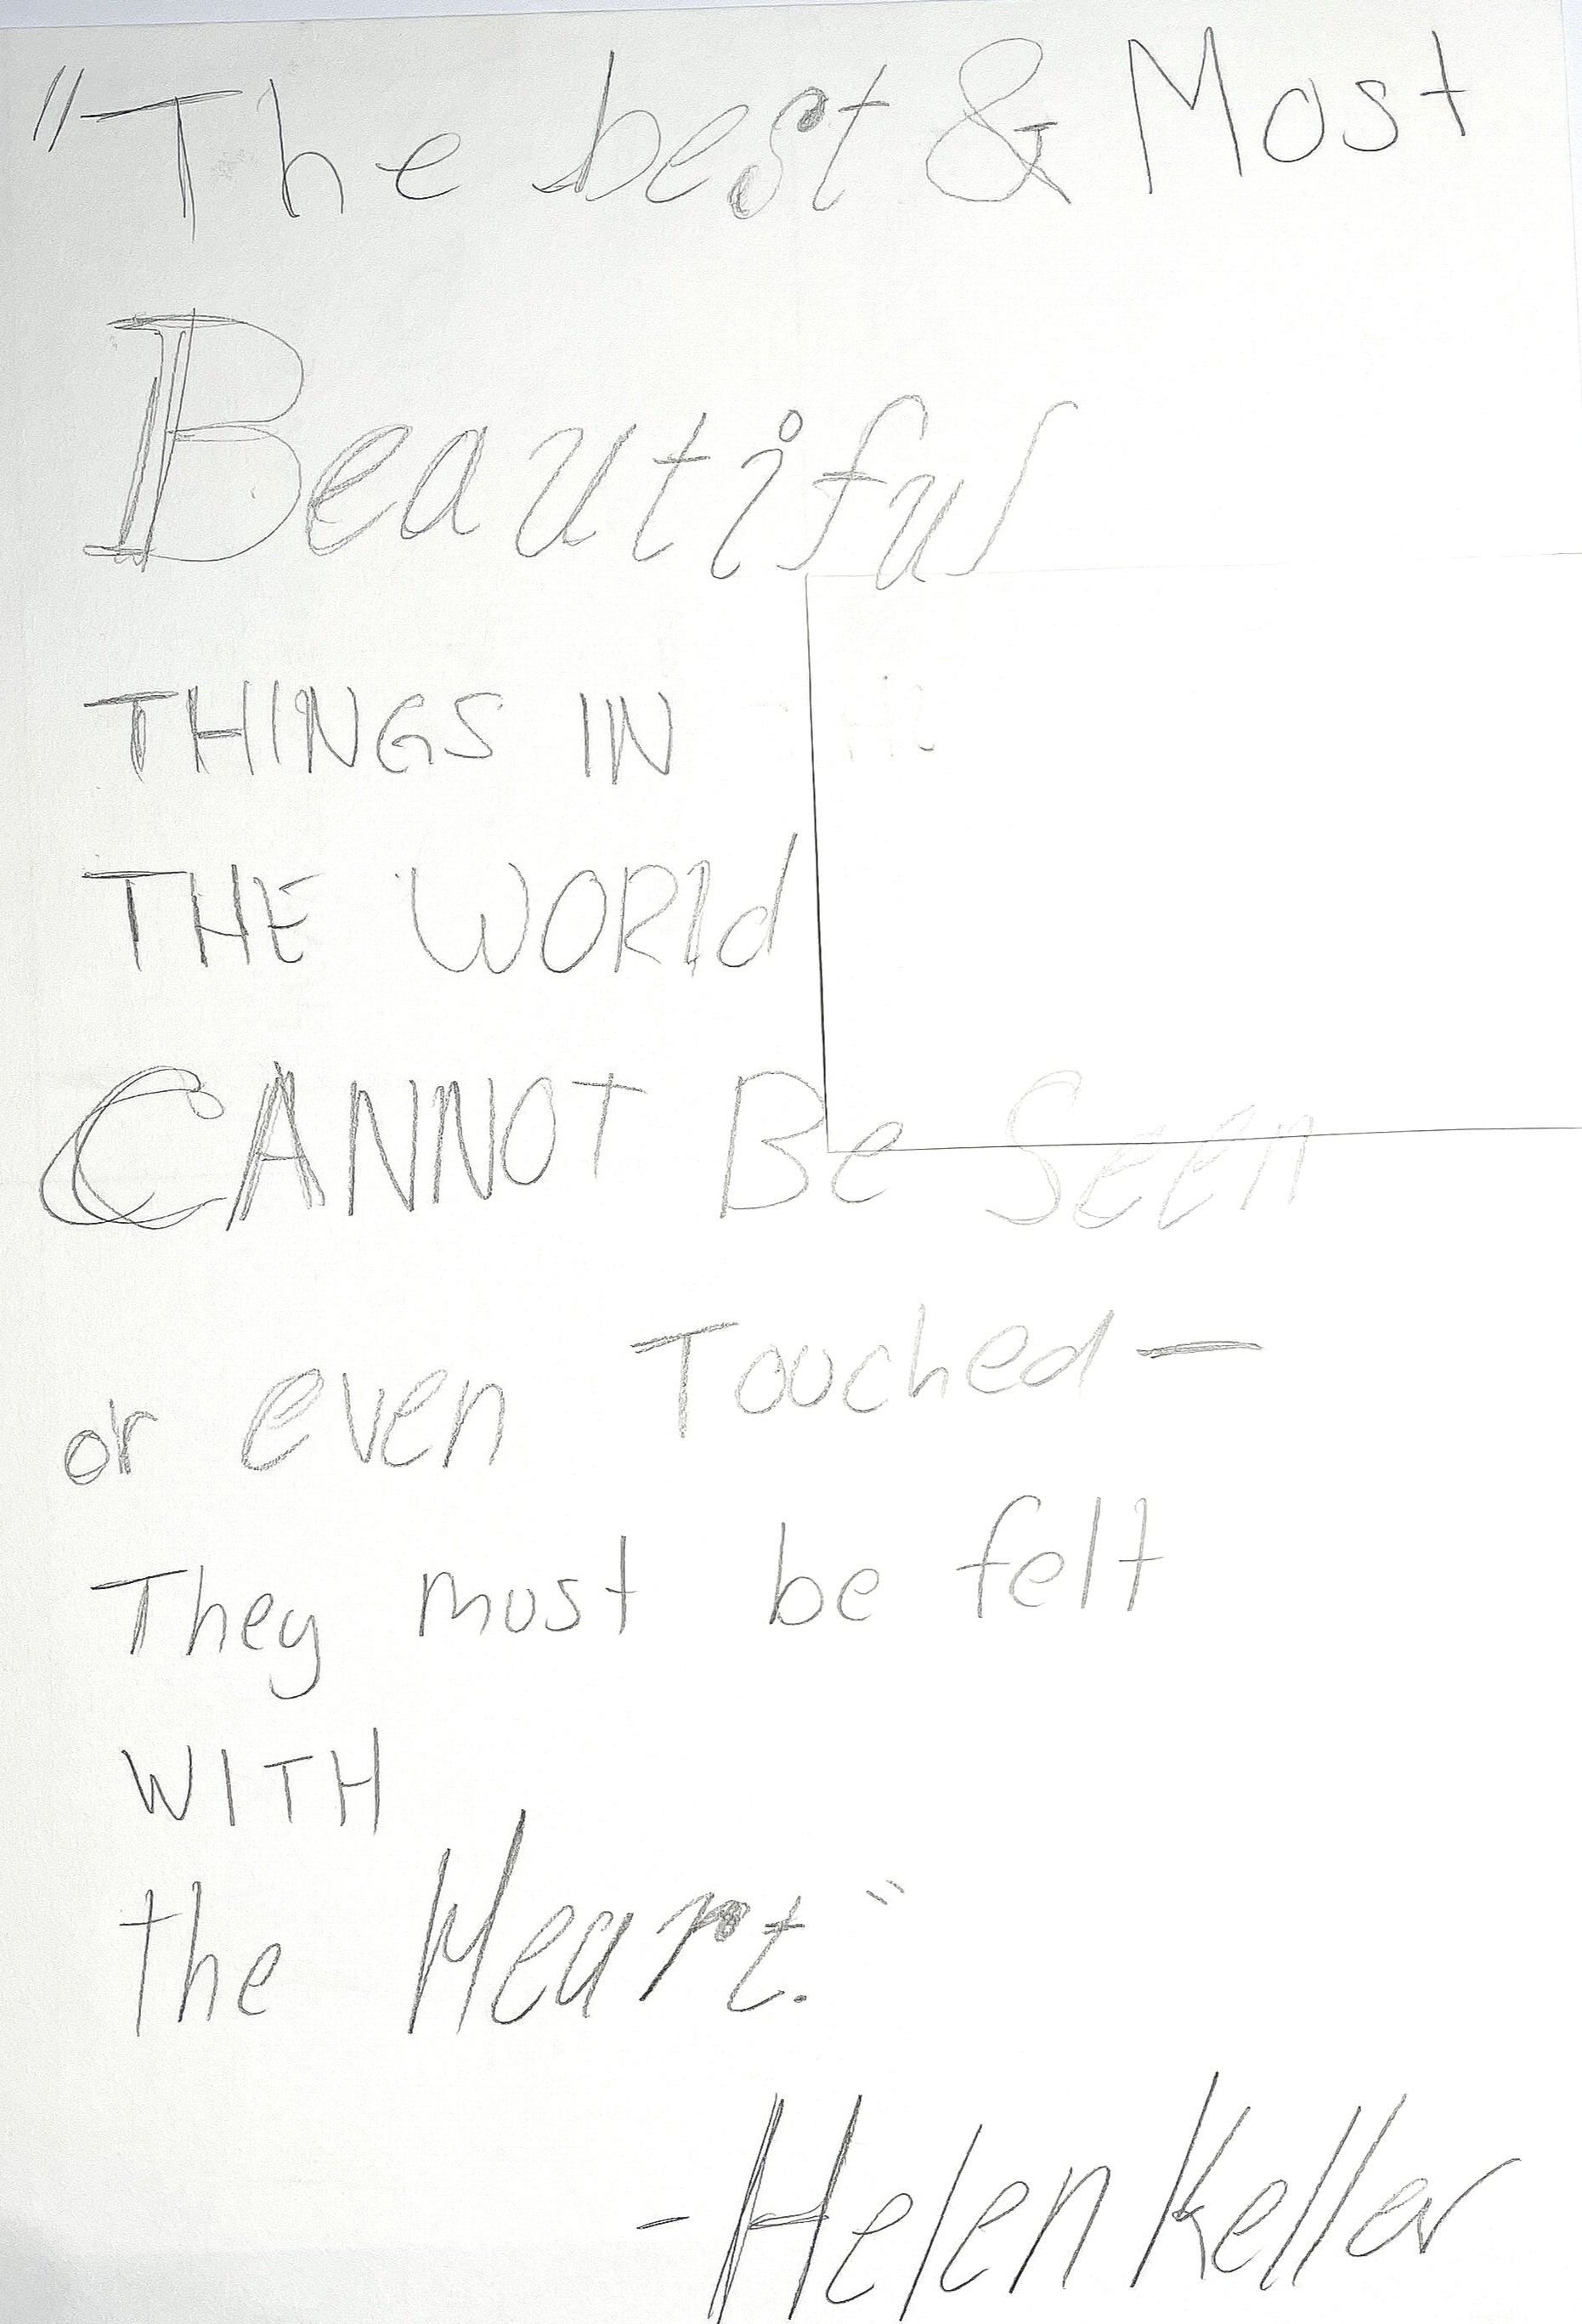 "The best & Most
Beautiful
THINGS IN
THE WORld
CANNOT Be Seen
or even Touched—
They must be felt
WITH
the Heart."
- Helen Keller